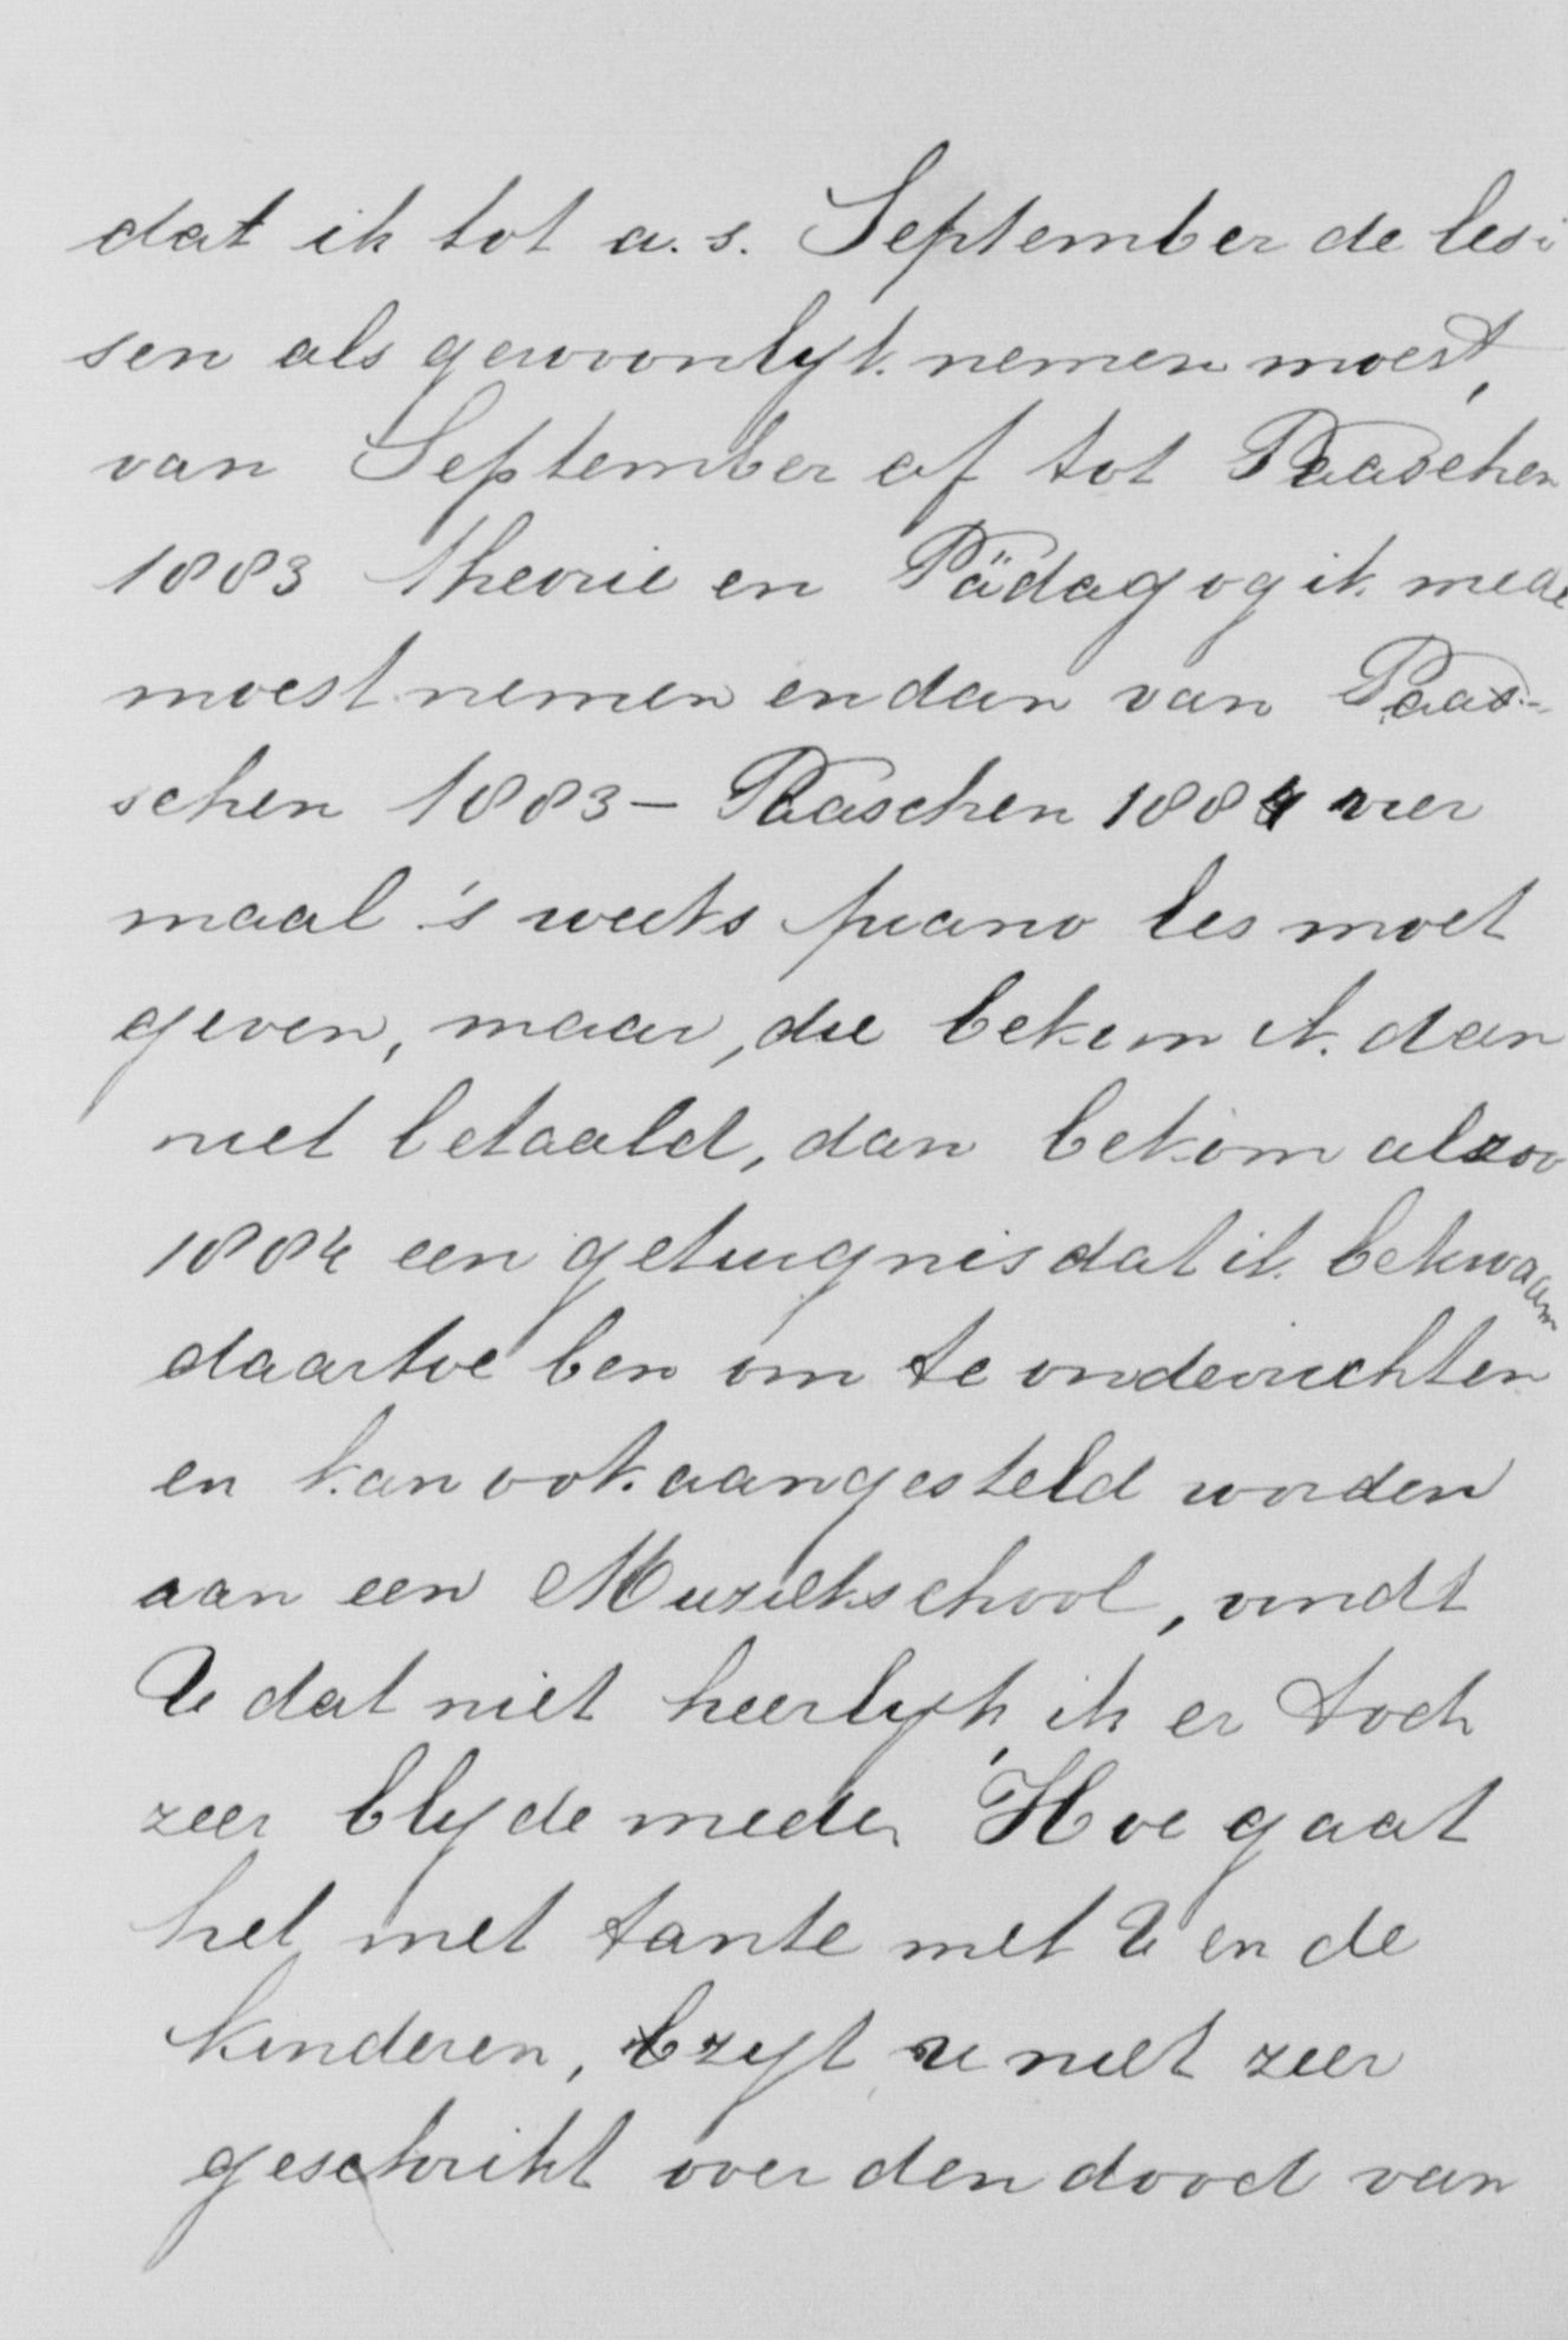 dat ik tot a. s. September de les-
sen als gewoonlyk nemen moest,
van September af tot Paaschen
1883 Theorie en Pädagogik mede
moest nemen en dan van Paas-
schen 1883 – Paaschen 1884 vier
maal 's weeks piano les moet
geven, maar, die bekom ik dan
niet betaald, dan bekom alzoo
1884 een getuignis dat ik bekwaam
daartoe ben om te onderrichten
en kan ook aangesteld worden
aan een Muziekschool, vindt
U dat niet heerlyk, ik er toch
zeer blyde mede. Hoe gaat
het met tante met U en de
kinderen, zyt u niet zeer
geschrikt over den dood van